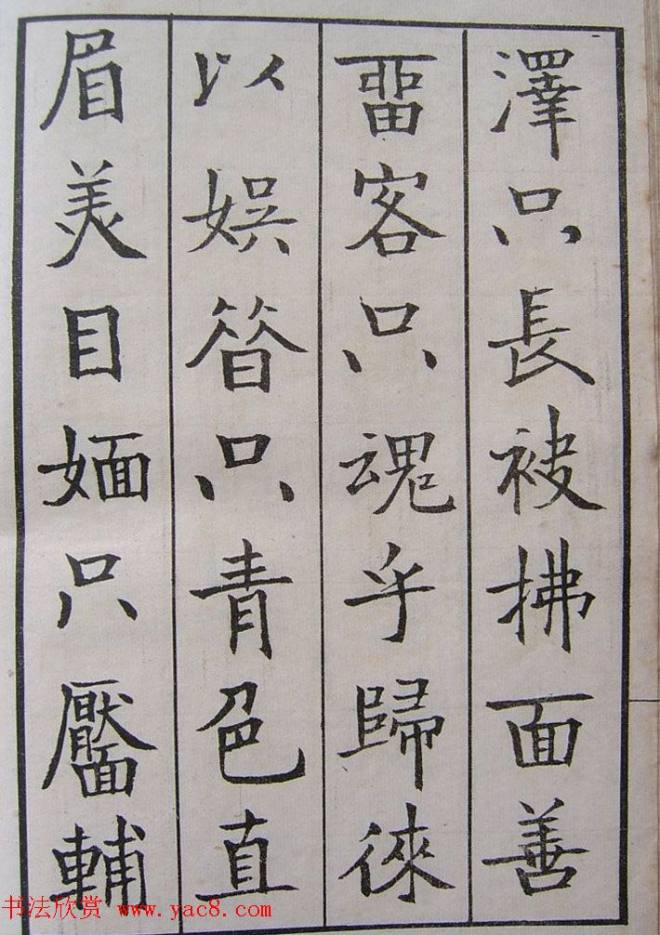 澤只長袂拂面善
畱客只魂乎歸徠
以娱㫺只青色直
眉美目媔只靨輔
书法欣赏 www.yac8.com